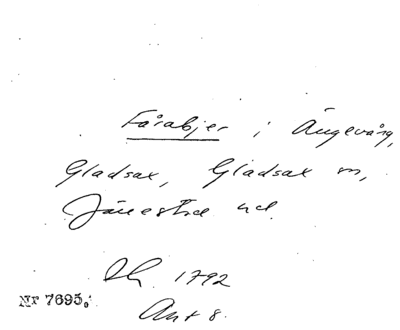 Fårabjer i Ängavång,
Gladsax, Gladsax sn,
Järrestad hd.
Sk. 1792
Nr 7695.
Akt 8.